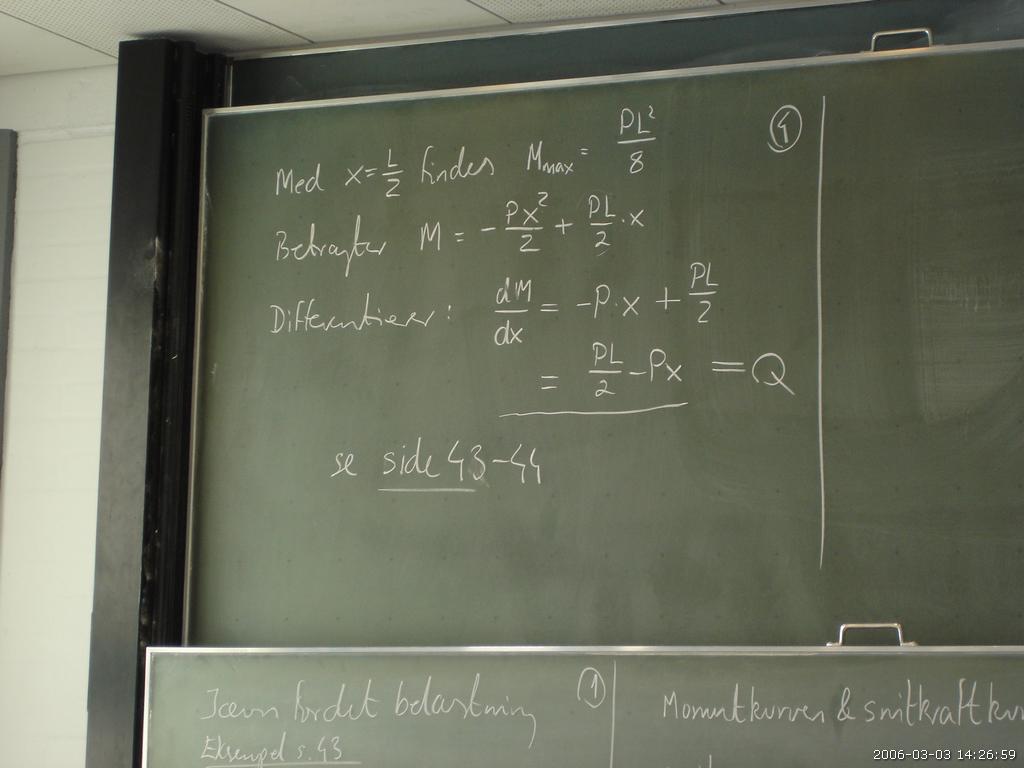 ④
Med x = L/2 findes M_max = PL²/8
Betragter M = - Px²/2 + PL/2 · x
Differentierer: dM/dx = -P·x + PL/2
= PL/2 - Px = Q
se side 43-44
Jævn fordelt belastning ①
Eksempel s. 43
Momentkurver & snitkraftkur
2006-03-03 14:26:59